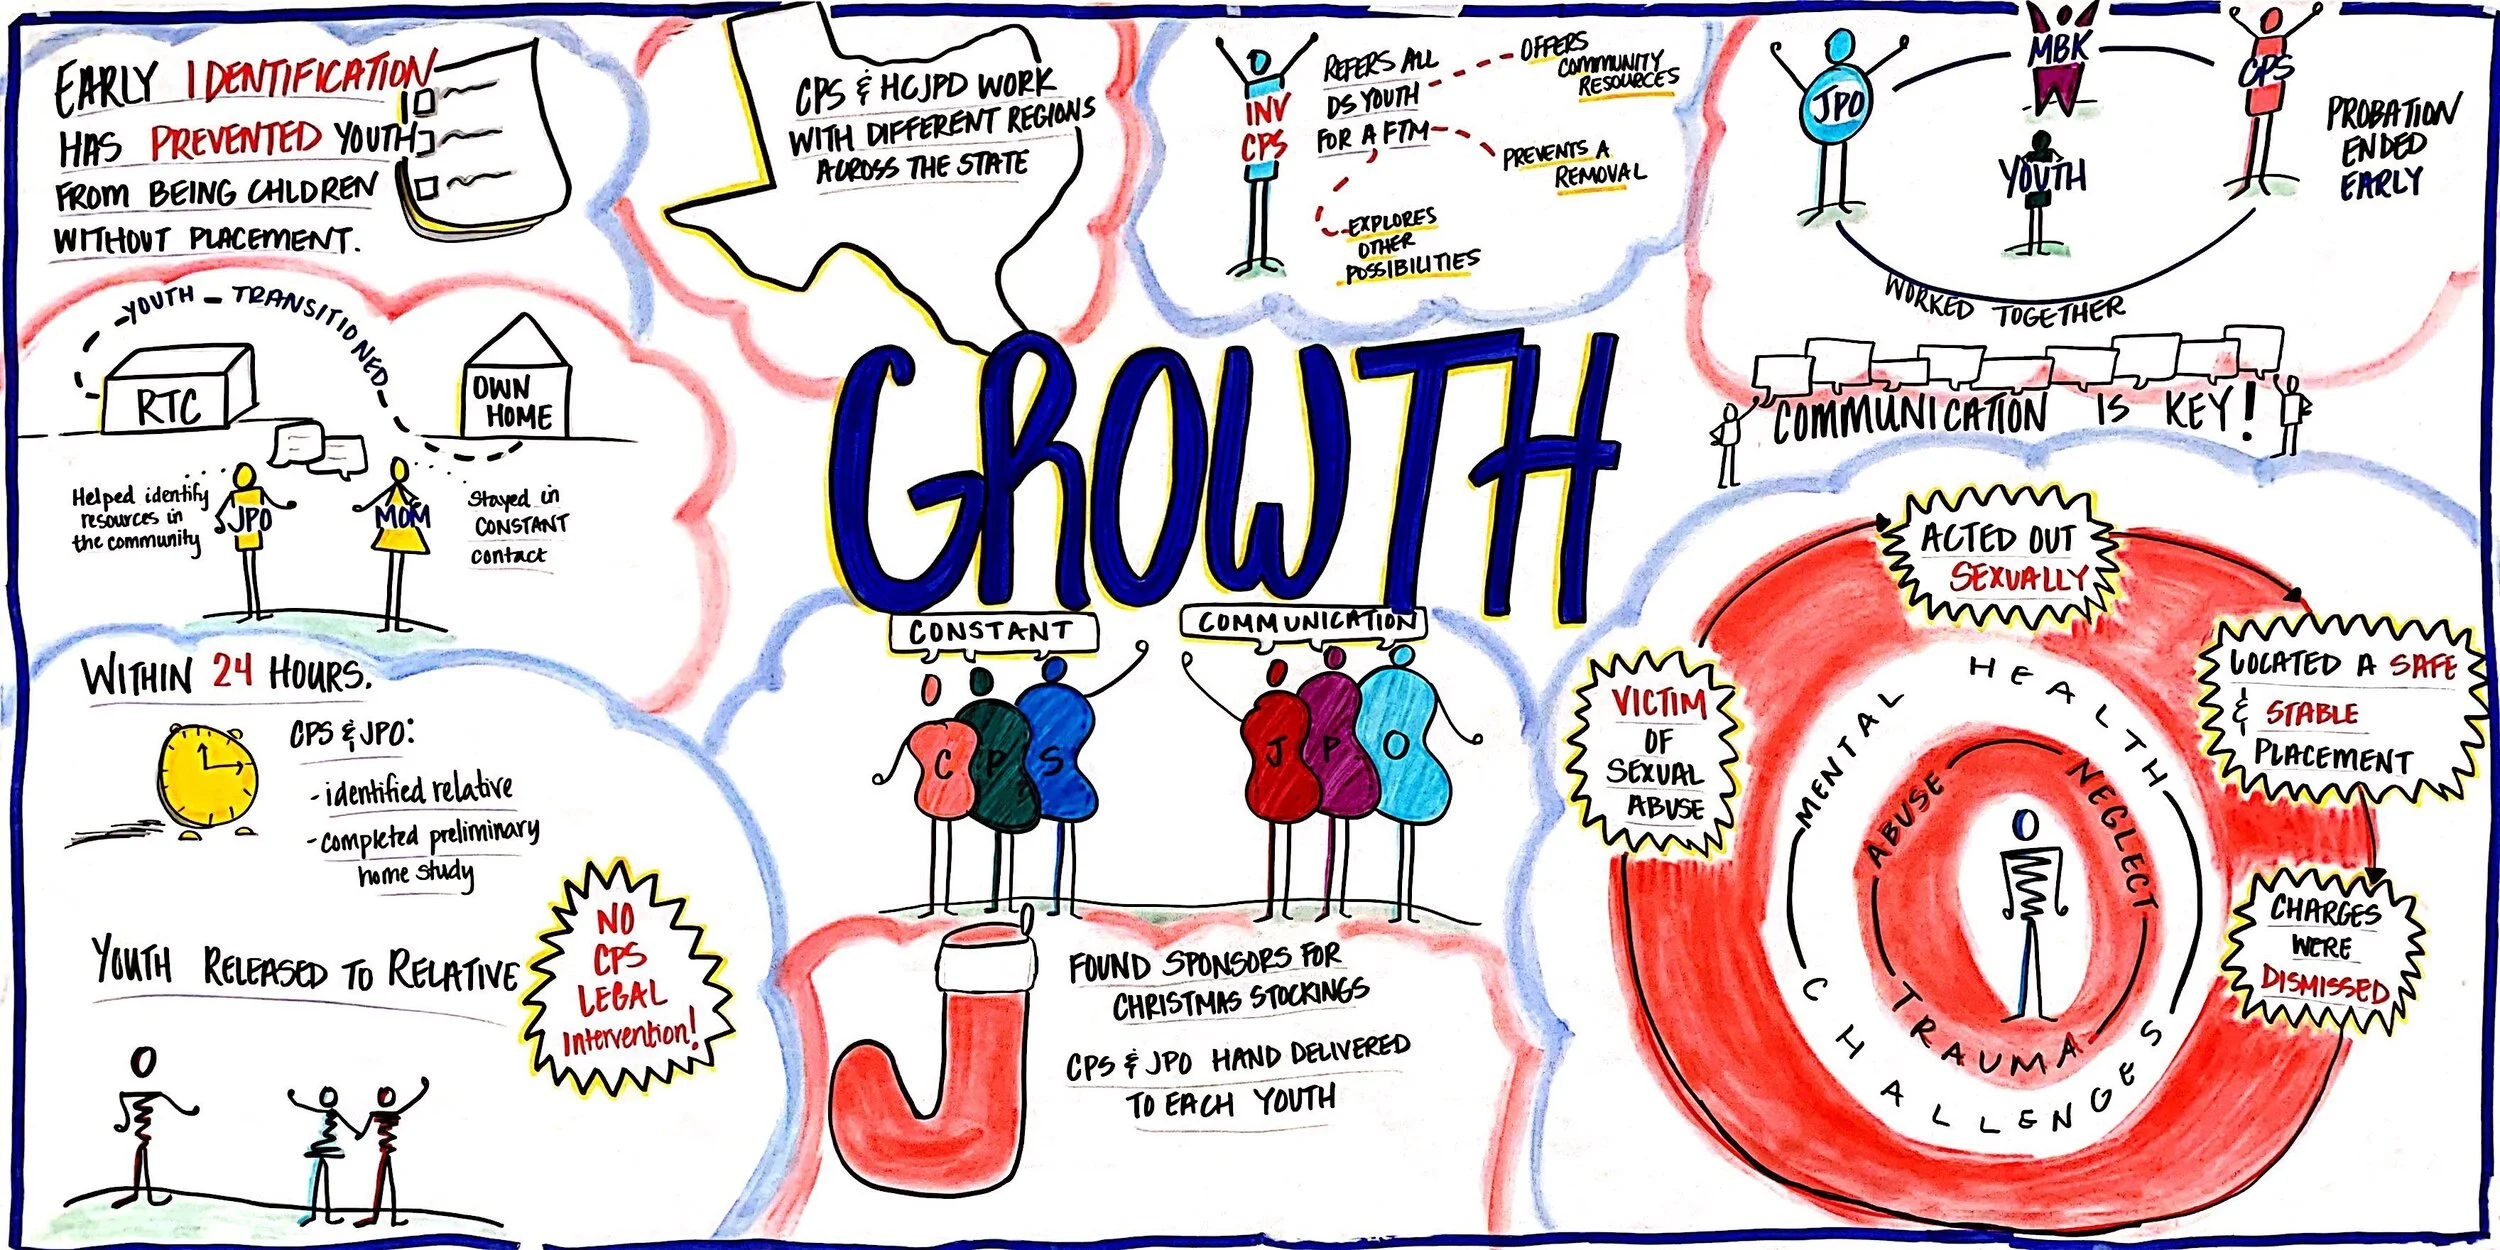 EARLY IDENTIFICATION
HAS PREVENTED YOUTH
FROM BEING CHLDREN
WITHOUT PLACEMENT.
CPS & HCJPD WORK
WITH DIFFERENT REGIONS
ACROSS THE STATE
INV
CPS
REFERS ALL
DS YOUTH
FOR A FTM
OFFERS
COMMUNITY
RESOURCES
PREVENTS A
REMOVAL
EXPLORES
OTHER
POSSIBILITIES
JPO
MBK
CPS
YOUTH
PROBATION
ENDED
EARLY
WORKED TOGETHER
COMMUNICATION IS KEY!
YOUTH - TRANSITIONED
RTC
OWN
HOME
Helped identify
resources in
the community
JPO
MOM
Stayed in
CONSTANT
contact
GROWTH
CONSTANT
COMMUNICATION
C P S
J P O
WITHIN 24 HOURS.
CPS & JPO:
- identified relative
- completed preliminary
home study
YOUTH RELEASED TO RELATIVE
NO
CPS
LEGAL
Intervention!
FOUND SPONSORS FOR
CHRISTMAS STOCKINGS
CPS & JPO HAND DELIVERED
TO EACH YOUTH
VICTIM
OF
SEXUAL
ABUSE
ACTED OUT
SEXUALLY
LOCATED A SAFE
& STABLE
PLACEMENT
CHARGES
WERE
DISMISSED
MENTAL HEALTH
CHALLENGES
ABUSE
NEGLECT
TRAUMA